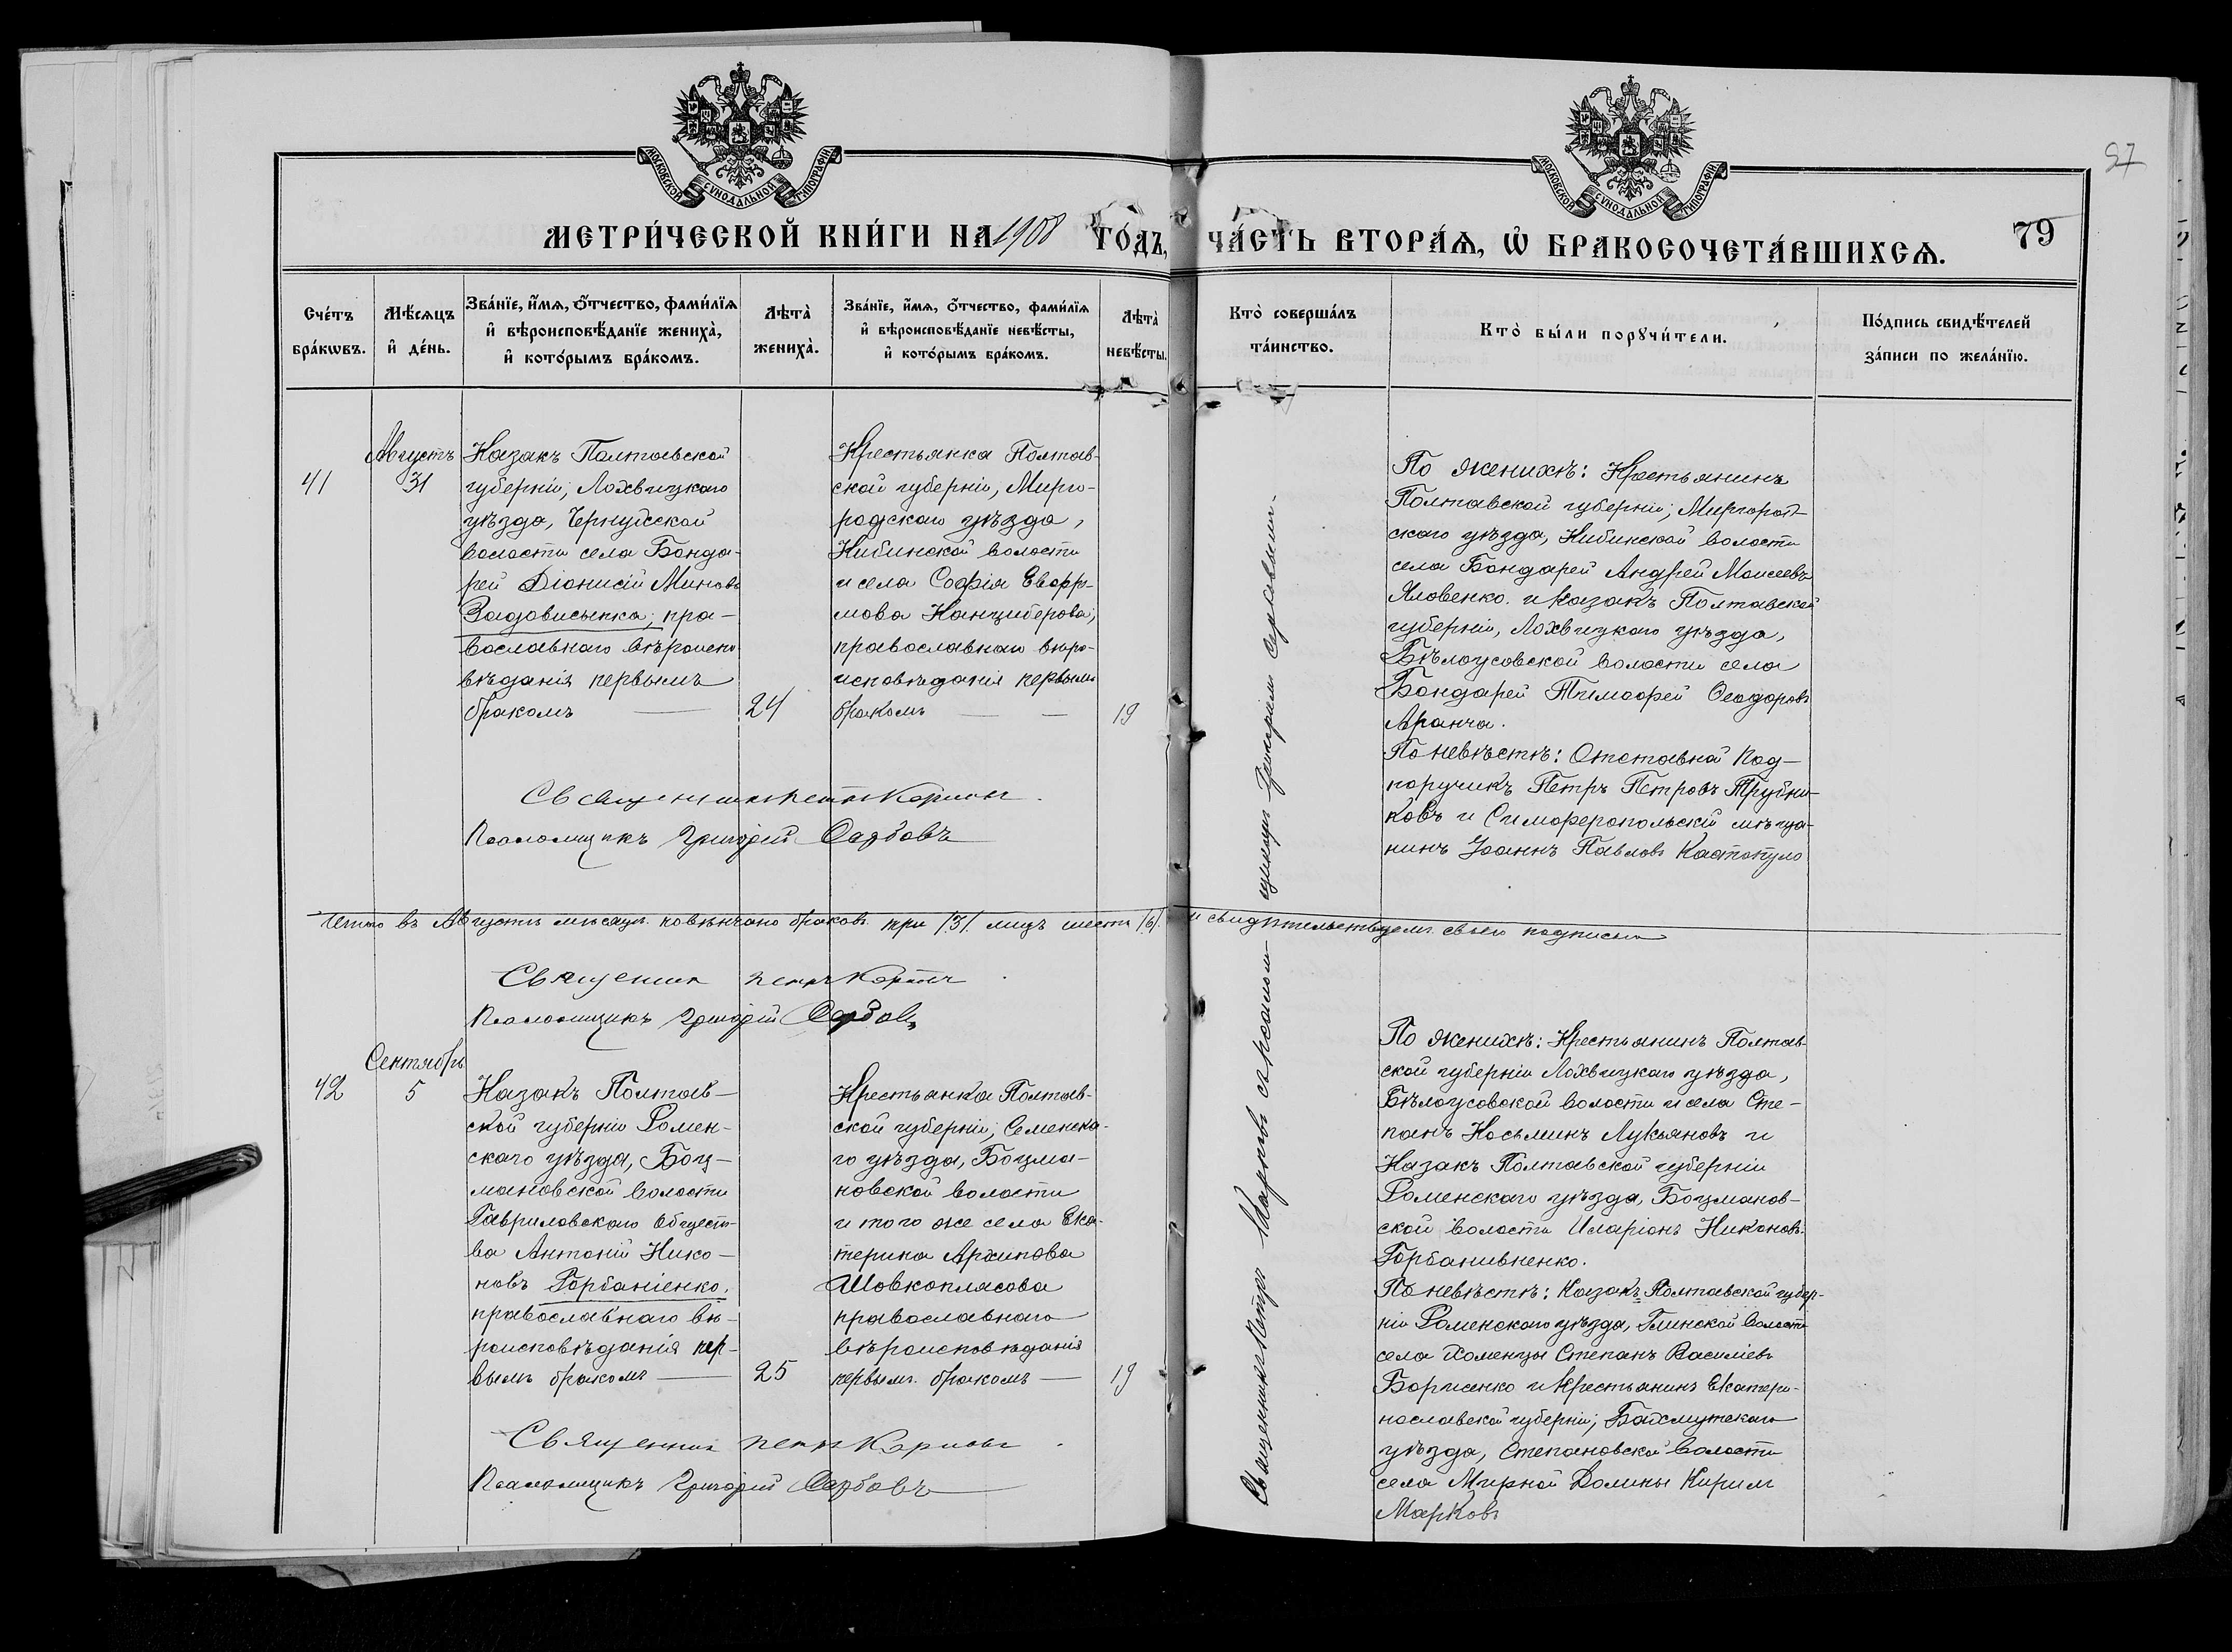 МОСКОВСКОЙ СѴНОДАЛЬНОЙ ТИПОГРАФІИ
МОСКОВСКОЙ СѴНОДАЛЬНОЙ ТИПОГРАФІИ
97
МЕТРИ́ЧЕСКОЙ КНИ́ГИ НА 1908 ГО́ДЪ,
ЧА́СТЬ ВТОРА́Ѧ, Ѡ҆ БРАКОСОЧЕТА́ВШИХСѦ.
79
Сче́тъ бра́кѡвъ.
Мѣ́сѧцъ и҆ де́нь.
Зва́нїе, и҆́мѧ, ѻ҆́тчество, фами́лїѧ и҆ вѣроисповѣ́данїе жениха̀, и҆ кото́рымъ бра́комъ.
Лѣта̀ жениха̀.
Зва́нїе, и҆́мѧ, ѻ҆́тчество, фами́лїѧ и҆ вѣроисповѣ́данїе невѣ́сты, и҆ кото́рымъ бра́комъ.
Лѣта̀ невѣ́сты.
Кто̀ соверша́лъ та́инство.
Кто̀ бы́ли порꙋчи́тели.
По́дпись свидѣ́телей за́писи по жела́нїю.
41
Августъ
31
Казакъ Полтавской
губерніи, Лохвицкаго
уѣзда, Чернусской
волости села Бонда-
рей Діонисій Миновъ
Задовисьпка; пра-
вославнаго вѣроиспо
вѣданія первымъ
бракомъ
24
Крестьянка Полтав-
ской губерніи, Мирго-
родскаго уѣзда,
Кибинской волости
и села Софія Евфро-
мова Канциберова,
православнаго вѣро-
исповѣданія первымъ
бракомъ
19
По женихѣ: Крестьянинъ
Полтавской губерніи, Миргород-
скаго уѣзда, Кибинской волости
села Бондарей Андрей Моисеевъ
Яловенко и казакъ Полтавской
губерніи, Лохвицкаго уѣзда,
Бѣлоусовской волости села
Бондарей Тимоѳей Ѳеодоровъ
Аранча.
По невѣстѣ: Отставной Под-
поручикъ Петръ Петровъ Трубни-
ковъ и Симферопольскій мѣща-
нинъ Іоаннъ Павловъ Кастопуло
Священникъ Петръ
Псаломщикъ Григорій
Итого въ Августѣ мѣсяцѣ повѣнчано браковъ три /3/ лицъ шесть /6/
и свидѣтельствуемъ своею подписью
Священникъ Петръ
Псаломщикъ Григорій
Священникъ Петръ
съ псаломщикомъ Григоріемъ
42
Сентябрь
5
Казакъ Полтав-
ской губерніи Ромен-
скаго уѣзда, Боц-
мановской волости
Гавриловскаго общест-
ва Антоній Нико-
новъ Горбаніенко,
православнаго вѣ-
роисповѣданія пер-
вымъ бракомъ
25
Крестьянка Полтав-
ской губерніи,
го уѣзда, Боцма-
новской волости
и того же села Ека-
терина Архипова
Шовкоплясова
православнаго
вѣроисповѣданія
первымъ бракомъ
19
По женихѣ: Крестьянинъ Полтав
ской губерніи Лохвицкаго уѣзда,
Бѣлоусовской волости и села Сте-
панъ Косьминъ Лукьяновъ и
Казакъ Полтавской губерніи
Роменскаго уѣзда, Боцманов-
ской волости Иларіонъ Никоновъ
Горбанивненко.
По невѣстѣ: Казакъ Полтавской губер-
ніи Роменскаго уѣзда, Глинской волости
села Хоменцы Степанъ Василіевъ
Борисенко и крестьянинъ Екатери-
нославской губерніи, Бахмутскаго
уѣзда, Степановской волости
села Мирной Долины Кирилъ
Марковъ
Священникъ Петръ
Псаломщикъ Григорій